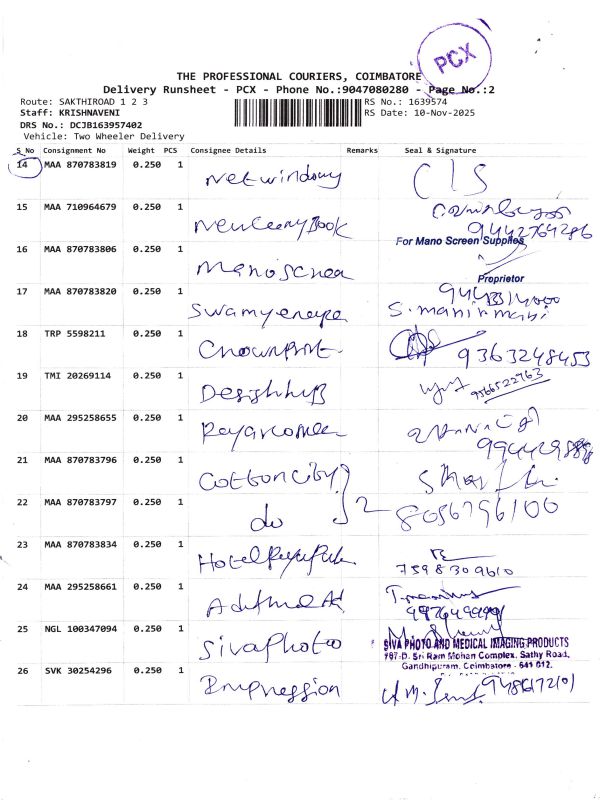 PCX
THE PROFESSIONAL COURIERS, COIMBATORE
Delivery Runsheet - PCX - Phone No.:9047080280 - Page No.:2
Route: SAKTHIROAD 1 2 3
Staff: KRISHNAVENI RS No.: 1639574
DRS No.: DCJB163957402 RS Date: 10-Nov-2025
Vehicle: Two Wheeler Delivery
S No Consignment No Weight PCS Consignee Details Remarks Seal & Signature
14 MAA 870783819 0.250 1 Netwindowy CLS
15 MAA 710964679 0.250 1 9442764286
16 MAA 870783806 0.250 1 For Mano Screen Supplies
Proprietor
17 MAA 870783820 0.250 1
18 TRP 5598211 0.250 1 9363248453
19 TMI 20269114 0.250 1 9566522763
20 MAA 295258655 0.250 1
21 MAA 870783796 0.250 1 Cottoncity
22 MAA 870783797 0.250 1 do 2 8056796100
23 MAA 870783834 0.250 1 Hotel 7598309610
24 MAA 295258661 0.250 1
25 NGL 100347094 0.250 1 Sivaphotoo
SIVA PHOTO AND MEDICAL IMAGING PRODUCTS
787-D, Sri Ram Mohan Complex, Sathy Road,
Gandhipuram, Coimbatore - 641 012.
26 SVK 30254296 0.250 1 Impression 9486172101